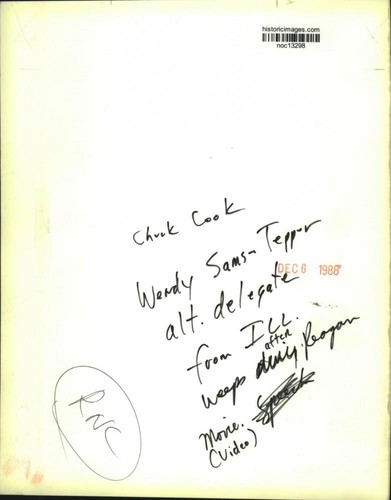 historicimages.com
noc13298
Chuck Cook
Wendy Samson Tepper
DEC 6 1988
alt. delegate
from ILL.
after
weeps Reagan
Movie.
(Video)
RNC